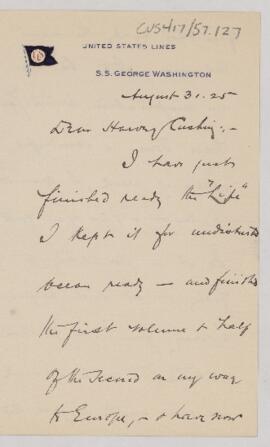 CUS417/57.127
UNITED STATES LINES
S.S. GEORGE WASHINGTON
August 31. 25
Dear Harvey Cushing; -
I have just
finished reading the "Life"
I kept it for undisturbed
ocean reading — and finished
the first volume & half
of the second on my way
to Europe, - & have now